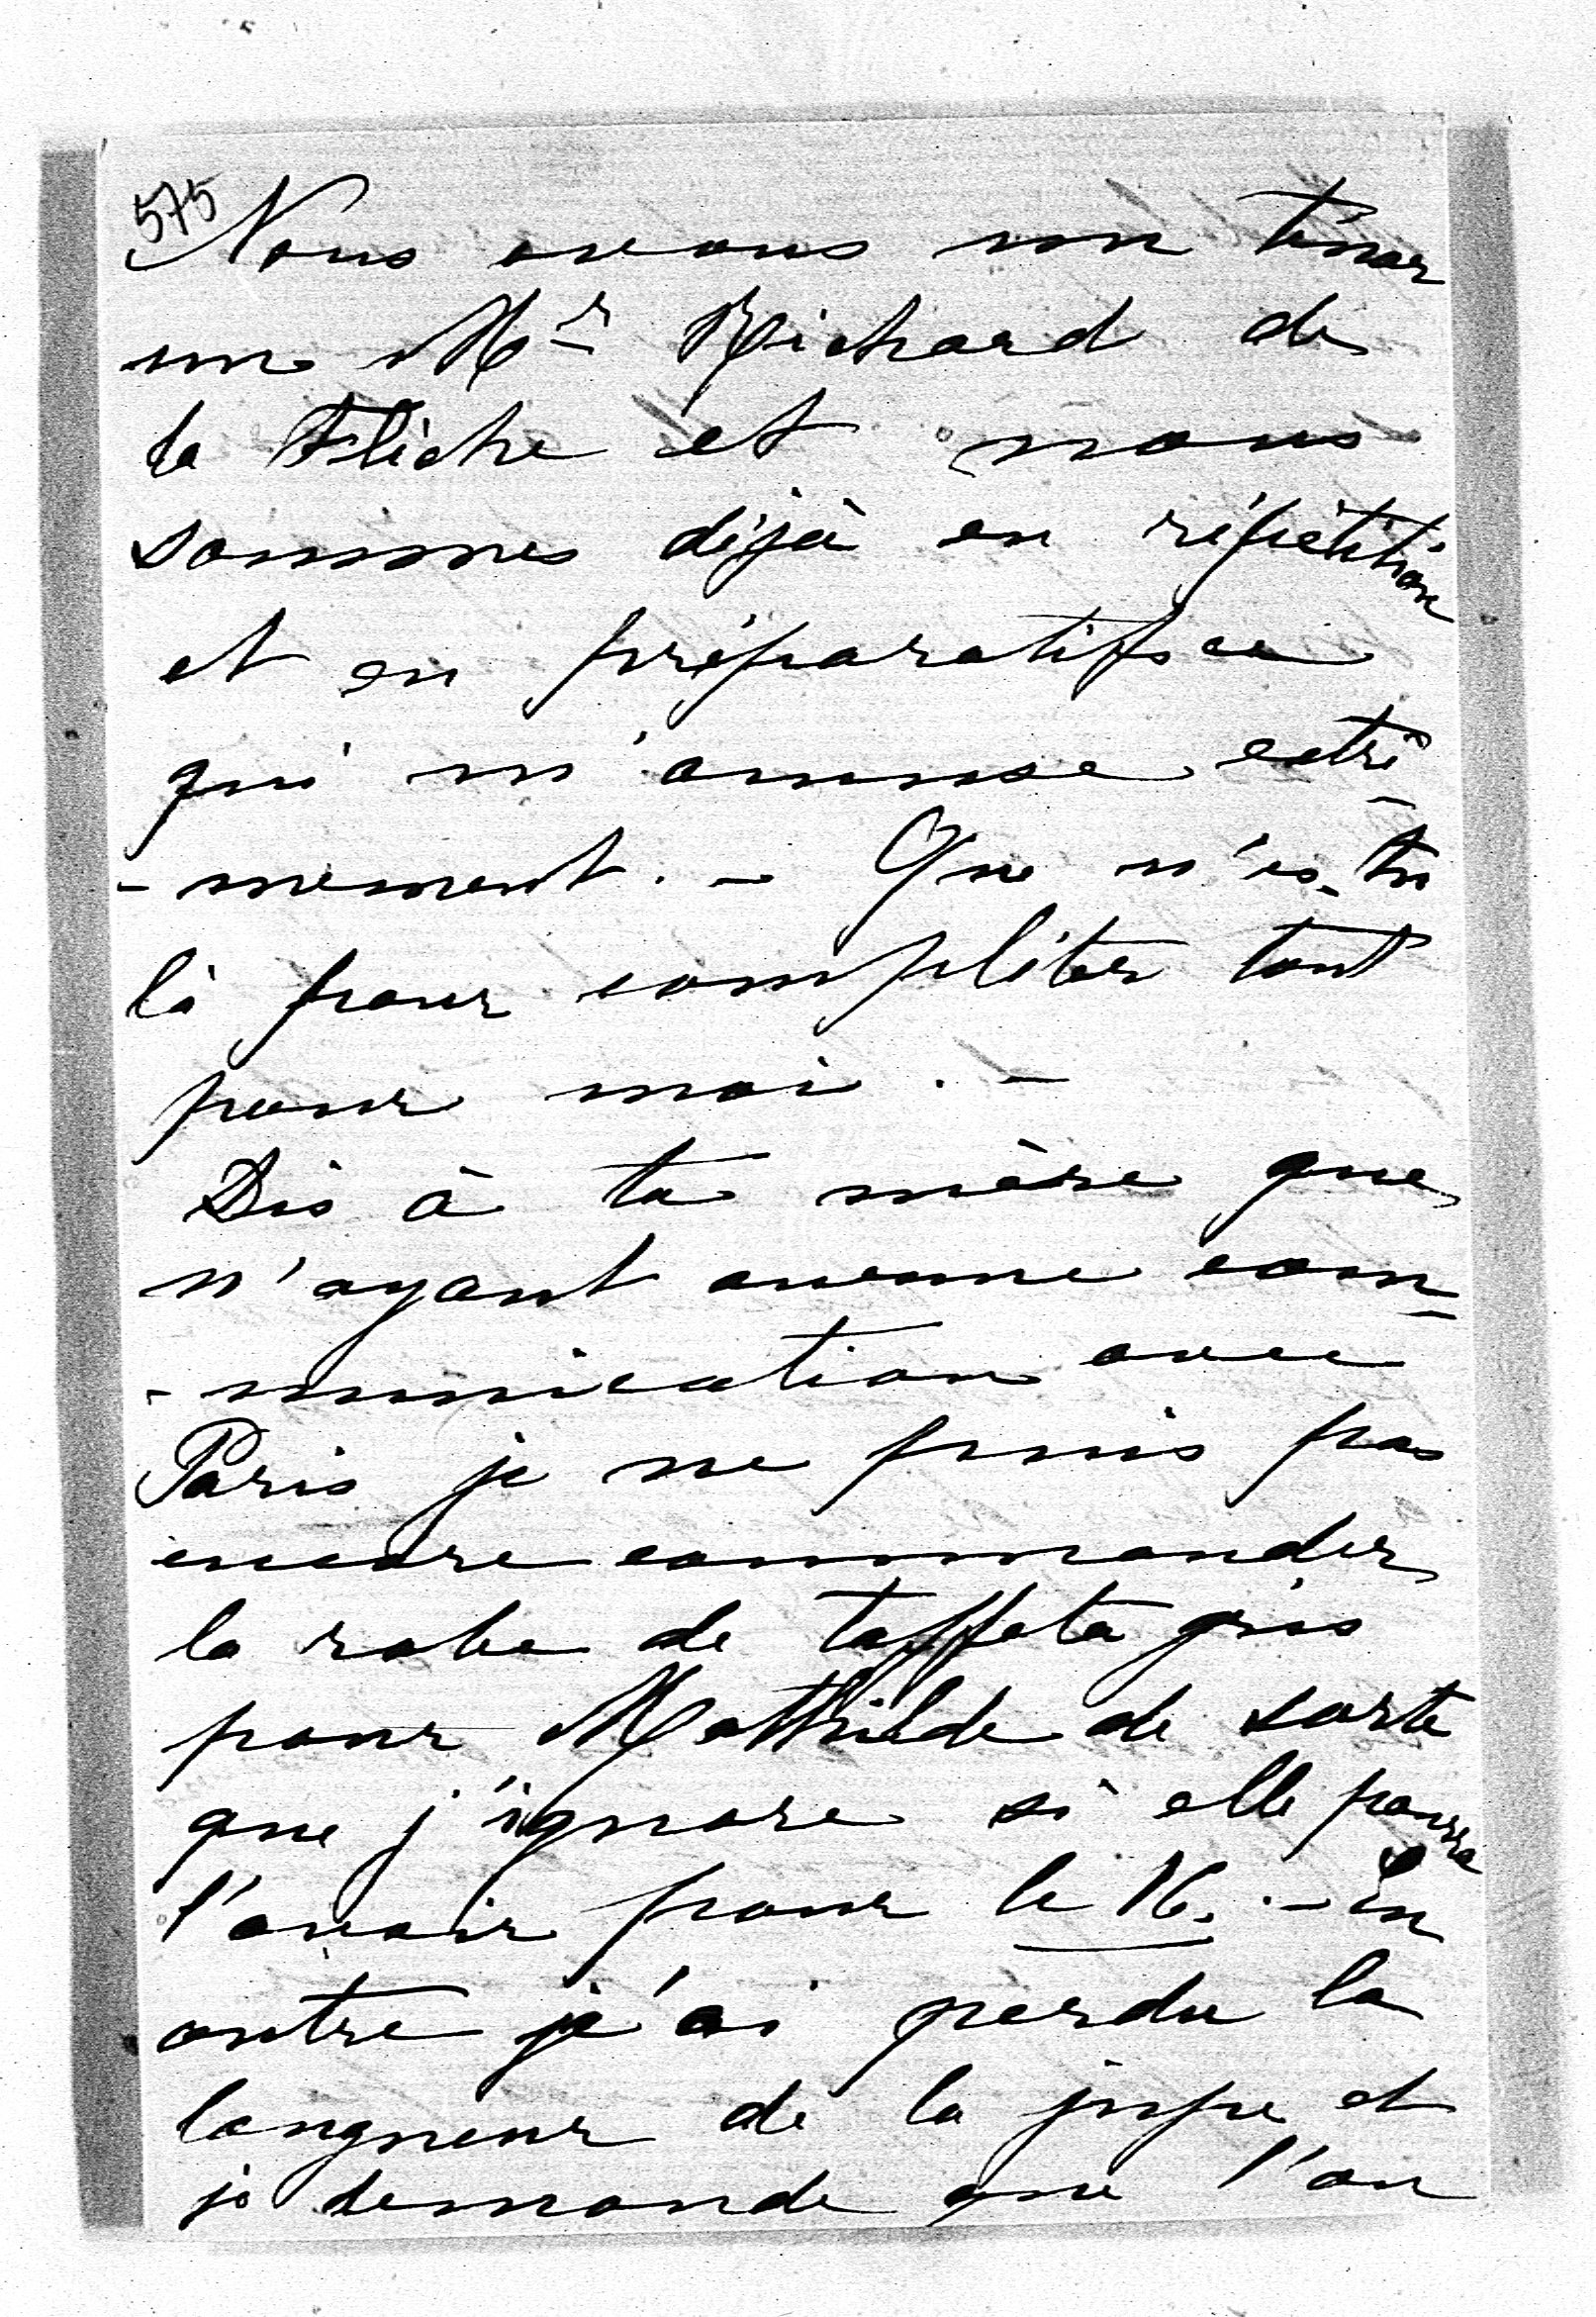 575
Nous avons un ténor
un Mr Richard de
la Flèche et nous
sommes déjà en répétition
et en préparatifs ce
qui m'amuse extrê-
-mement. - Que n'es-tu
là pour compléter tout
pour moi. -
Dis à ta mère que
n'ayant aucune com-
-munication avec
Paris je ne puis pas
encore commander
la robe de taffeta gris
pour Mathilde de sorte
que j'ignore si elle pourra
l'avoir pour le 16. - En
outre j'ai perdu la
longueur de la jupe et
je demande que l'on